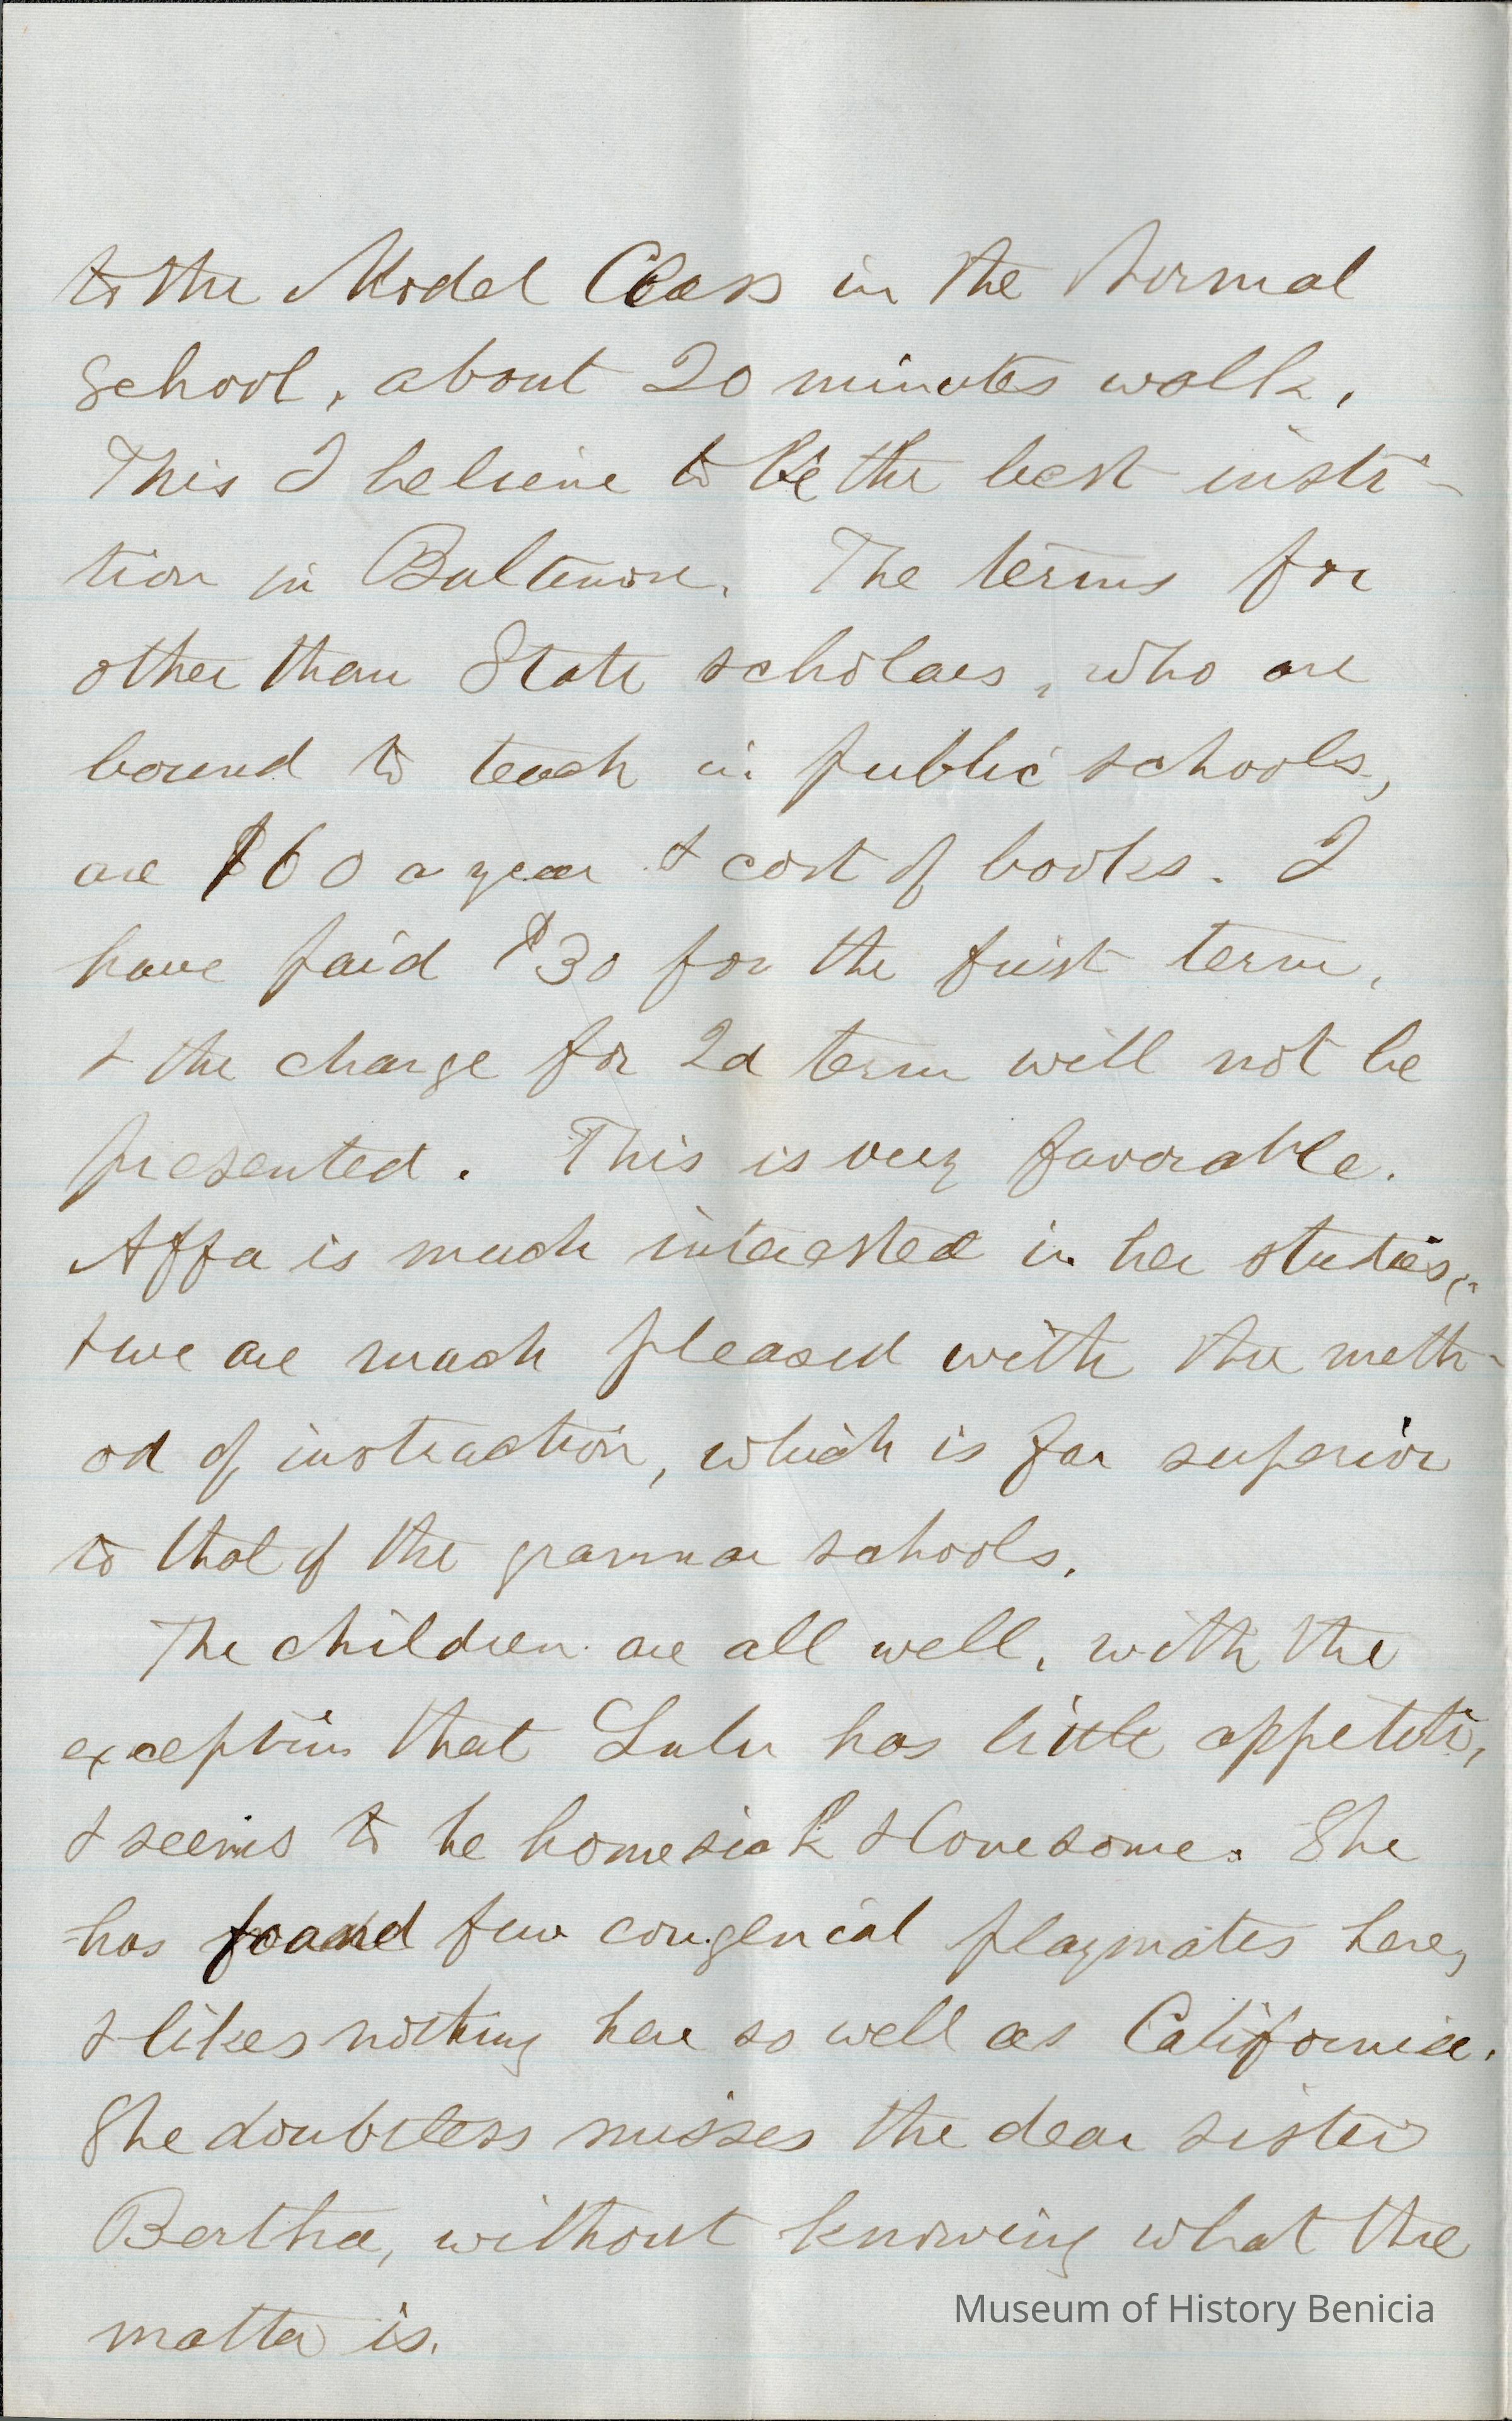 to the Model Class in the Normal
School, about 20 minutes walk,
This I believe to be the best insti-
tion in Baltimore. The terms for
other than State scholars, who are
bound to teach in public schools,
are $60 a year & cost of books. I
have paid $30 for the first term,
& the charge for 2d term will not be
presented. This is very favorable.
Affa is much interested in her studies,
& we are much pleased with the meth-
od of instruction, which is far superior
to that of the grammar schools.
The children are all well, with the
exception that Lulu has little appetite,
& seems to be homesick & lonesome. She
has found few congenial playmates here,
& likes nothing here so well as California.
She doubtless misses the dear sister
Bertha, without knowing what the
matter is.
Museum of History Benicia